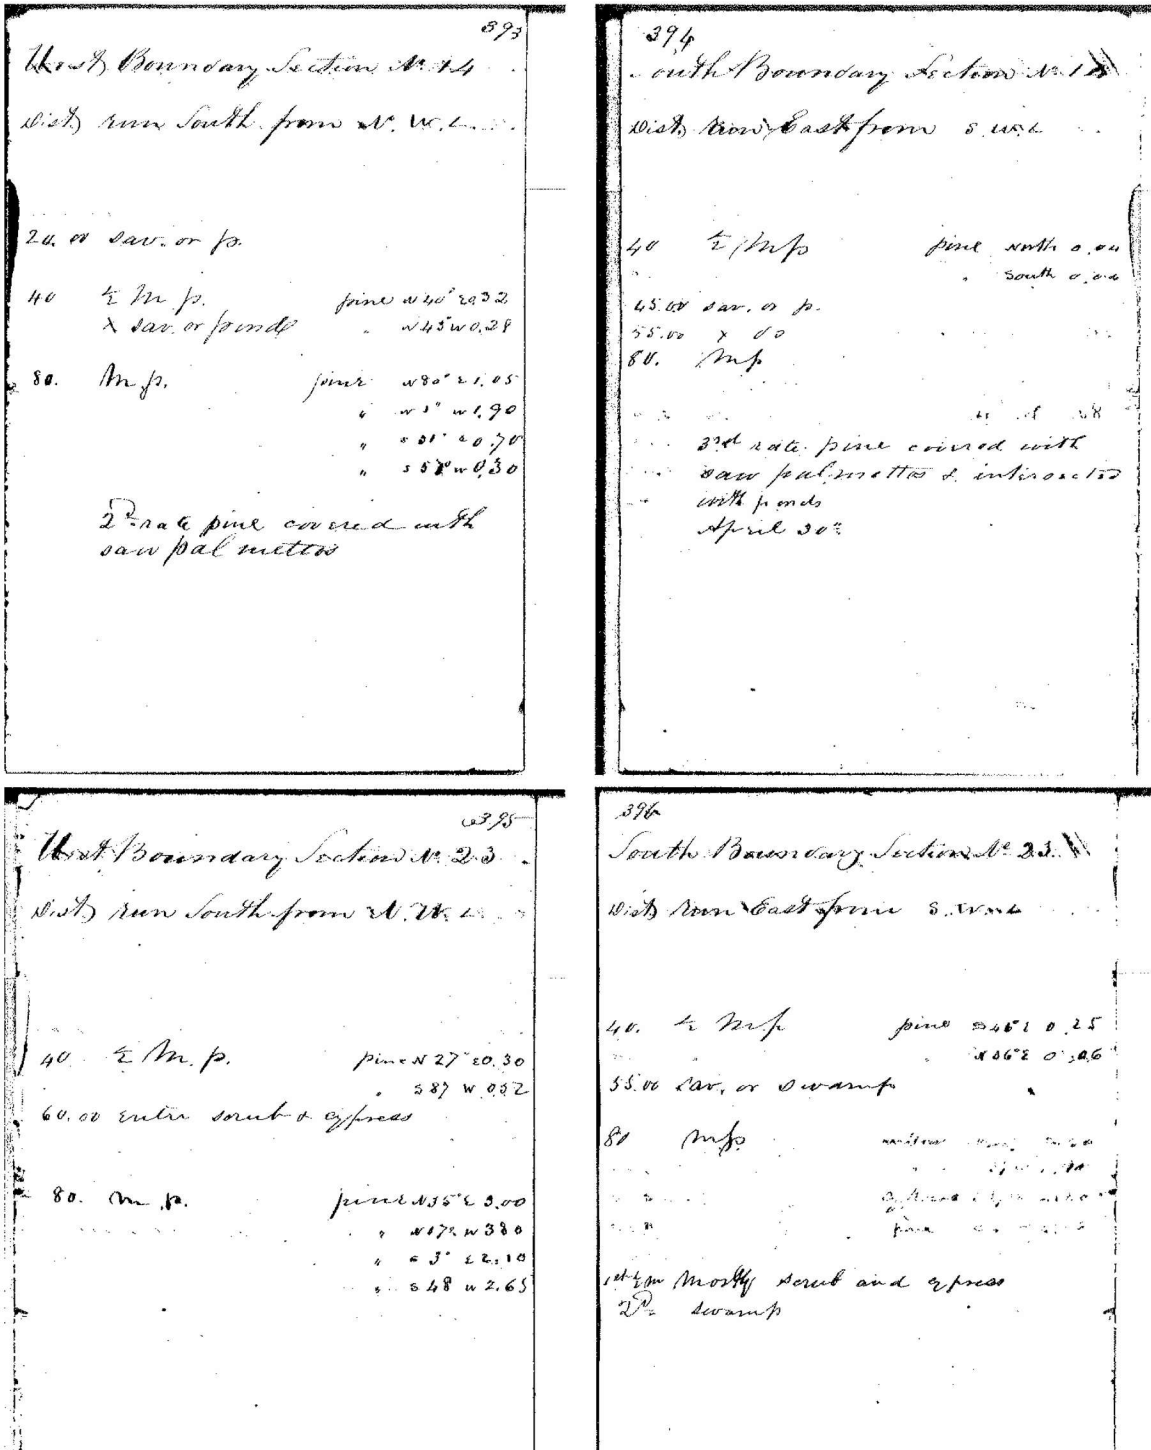 393
West Boundary Section No 14
Dist run South from N. W. C
20.00 sav. or p.
40 ½ M p. pine N 40° E 0.32
X sav. or pond " N 45 W 0.28
80. M. p. pine N 80° E 1.05
" W 1.90
" E 0.70
" S 58° W 0.30
2d rate pine covered with
saw palmettos
394
South Boundary Section No
Dist run East from S. W. C
40 ½ M p pine North
" South
45.00 sav. or p.
55.00 X do
80. M p
3rd rate pine covered with
saw palmettos & intersected
with ponds
April 30th
395
West Boundary Section No 23
Dist run South from N. W. C
40 ½ M. p. pine N 27° E 0.30
" S 87 W 0.52
60.00 enter scrub & cypress
80. M. p. pine N 35° E 3.00
" W 3.80
" S 3° E 2.10
" S 48 W 2.65
396
South Boundary Section No 23
Dist run East from S. W. C
40. ½ M. p pine S 45 E 0.25
" E
55.00 sav. or swamp
80 M p.
pine
1st ½ m Mostly scrub and cypress
2d swamp